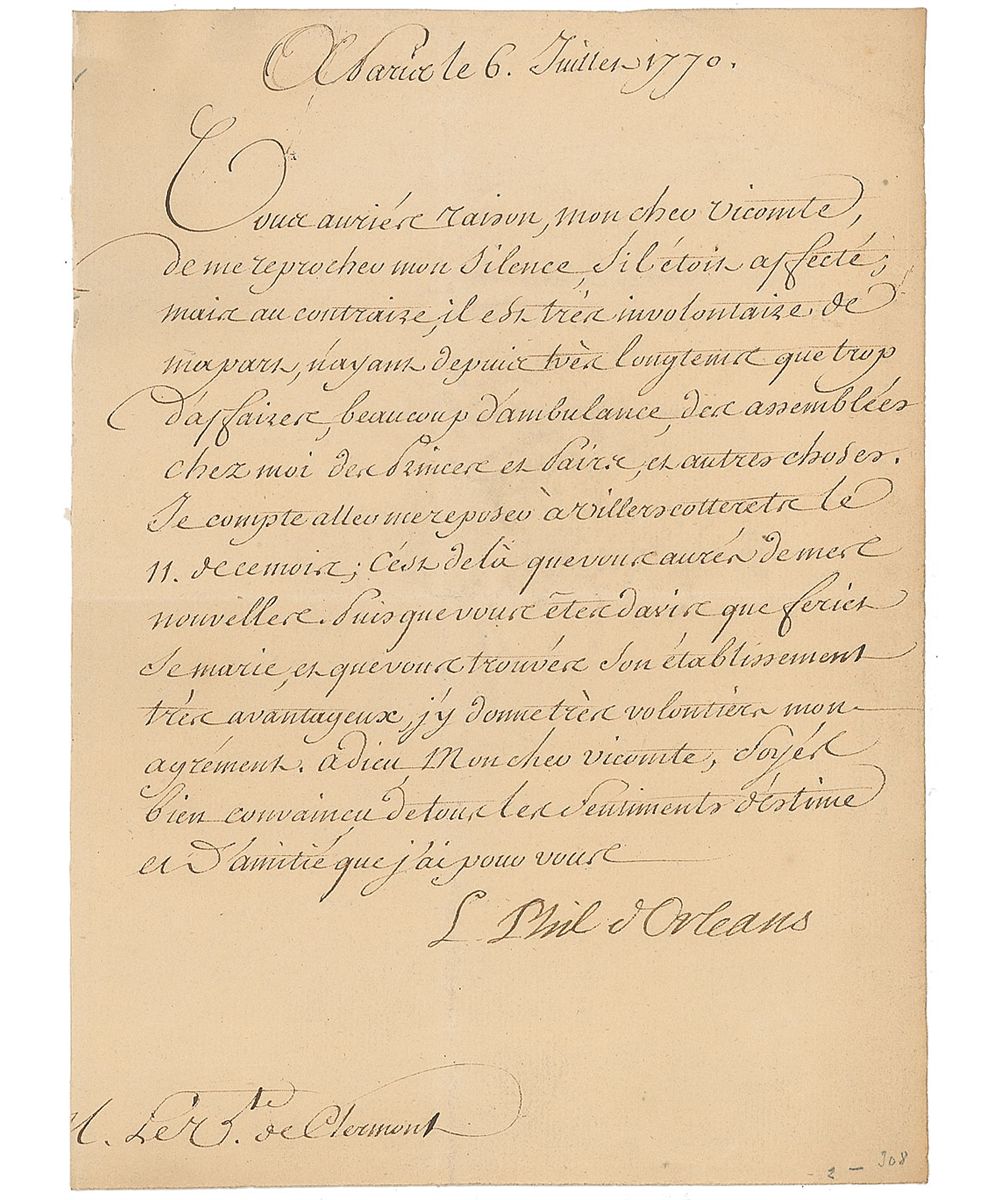 A Paris le 6. Juillet 1770.
Vous auriés raison, mon cher vicomte,
de me reprocher mon Silence, S'il étoit affecté;
mais au contraire, il est très involontaire de
ma part, n'ayant depuis très longtems que trop
d'affaires, beaucoup d'ambulance, des assemblées
chez moi des Princes et Pairs, et autres choses.
Je compte aller me reposer à villerscotterets le
11. de ce mois; c'est de là que vous aurés de mes
nouvelles. Puisque vous êtes d'avis que feriet
Se marie, et que vous trouvés Son établissement
très avantageux, j'y donne très volontiers mon
agrément. adieu Mon cher vicomte, Soyés
bien convaincu de tous les Sentiments d'estime
et D'amitié que j'ai pour vous
L Phil d'Orleans
M. Le V.te de Clermont
2 — 308